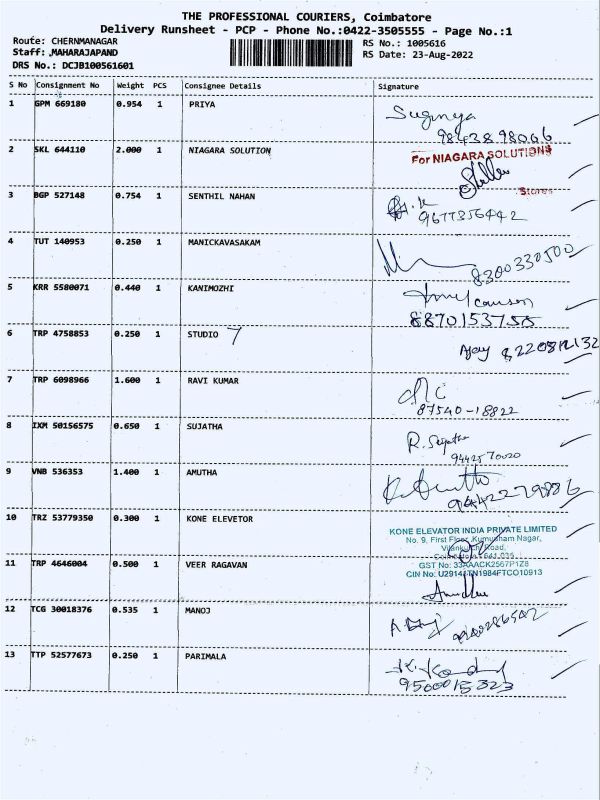 THE PROFESSIONAL COURIERS, Coimbatore
Delivery Runsheet - PCP - Phone No.:0422-3505555 - Page No.:1
Route: CHERNMANAGAR
Staff: ,MAHARAJAPAND
DRS No.: DCJB100561601
RS No.: 1005616
RS Date: 23-Aug-2022
S No Consignment No Weight PCS Consignee Details Signature
1 GPM 669180 0.954 1 PRIYA Suganya
2 SKL 644110 2.000 1 NIAGARA SOLUTION For NIAGARA SOLUTIONS
Stores
3 BGP 527148 0.754 1 SENTHIL NAHAN
9677356442
4 TUT 140953 0.250 1 MANICKAVASAKAM
8300330500
5 KRR 5580071 0.440 1 KANIMOZHI
8870153755
6 TRP 4758853 0.250 1 STUDIO 7 Ajay
7 TRP 6098966 1.600 1 RAVI KUMAR
87540-18822
8 IXM 50156575 0.650 1 SUJATHA R. Sujatha
9442570020
9 VNB 536353 1.400 1 AMUTHA
9442279886
10 TRZ 53779350 0.300 1 KONE ELEVETOR KONE ELEVATOR INDIA PRIVATE LIMITED
No. 9, First Floor, Kumusham Nagar,
Road,
11 TRP 4646004 0.500 1 VEER RAGAVAN GST No: 33AAACK2567P1Z8
CIN No: U29141TN1984FTCO10913
12 TCG 30018376 0.535 1 MANOJ
13 TTP 52577673 0.250 1 PARIMALA
9500015323